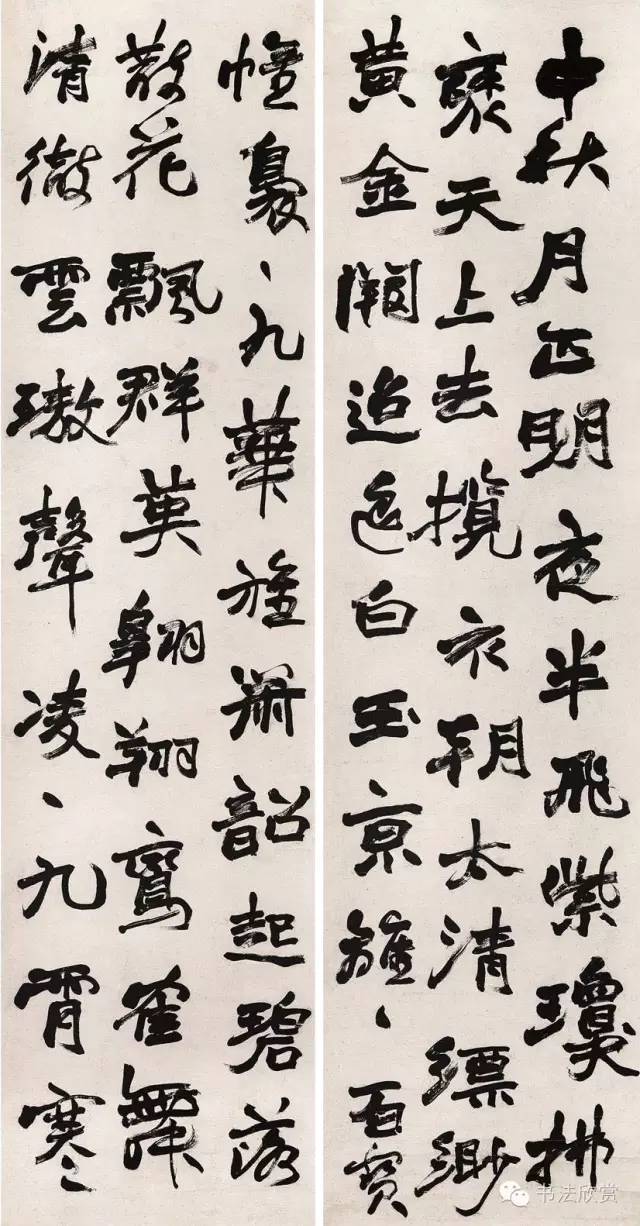 中秋月正明夜半飛紫瓊拂
褎天上去攬衣朝太清縹渺
黃金闕迢白玉京雝、百寶
幢裊、九華旌簫韶起碧落
散花飄群英翱翔鸞隺舞
清徹雲璈聲凌、九霄寒
书法欣赏